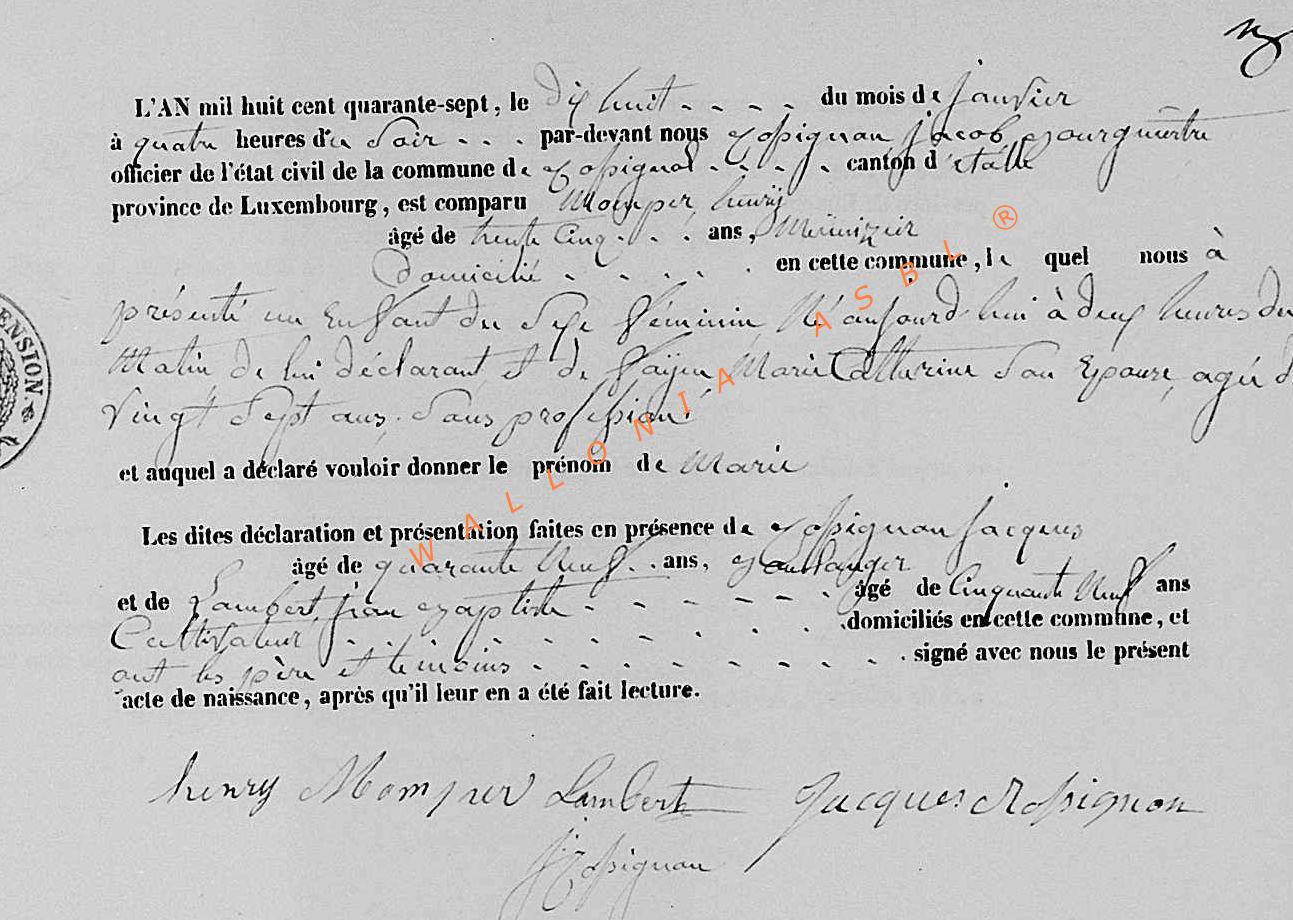 L'AN mil huit cent quarante-sept, le Dix huit - - - - du mois de janvier
à quatre heures du Soir - - - par-devant nous Rossignon Jacob, Bourguestre
officier de l'état civil de la commune de Rossignol - - - - canton d'etalle
province de Luxembourg, est comparu Momper, henry
âgé de trente Cinq - - - ans,
Domicilié - - - - - en cette commune, le quel nous à
présenté un Enfant du Sexe féminin, Né aujourd hui à deux heures du
Matin de lui déclarant et de Marie Catherine Son Epouse, agée d
Vingt Sept ans, Sans profession
et auquel a déclaré vouloir donner le prénom de Marie
Les dites déclaration et présentation faites en présence de Rossignon Jacques
âgé de quarante Neuf - - ans, Boulanger
et de Lambert, jean Baptiste - - - - - - âgé de Cinquante Neuf ans
Cultivateur - - - - - - - - - - domiciliés en cette commune, et
ont les père et temoins - - - - - - - - - signé avec nous le présent
acte de naissance, après qu'il leur en a été fait lecture.
henry Momper Lambert Jacques Rossignon
J Rossignon
ENSION.
WALLONIA ASBL ®